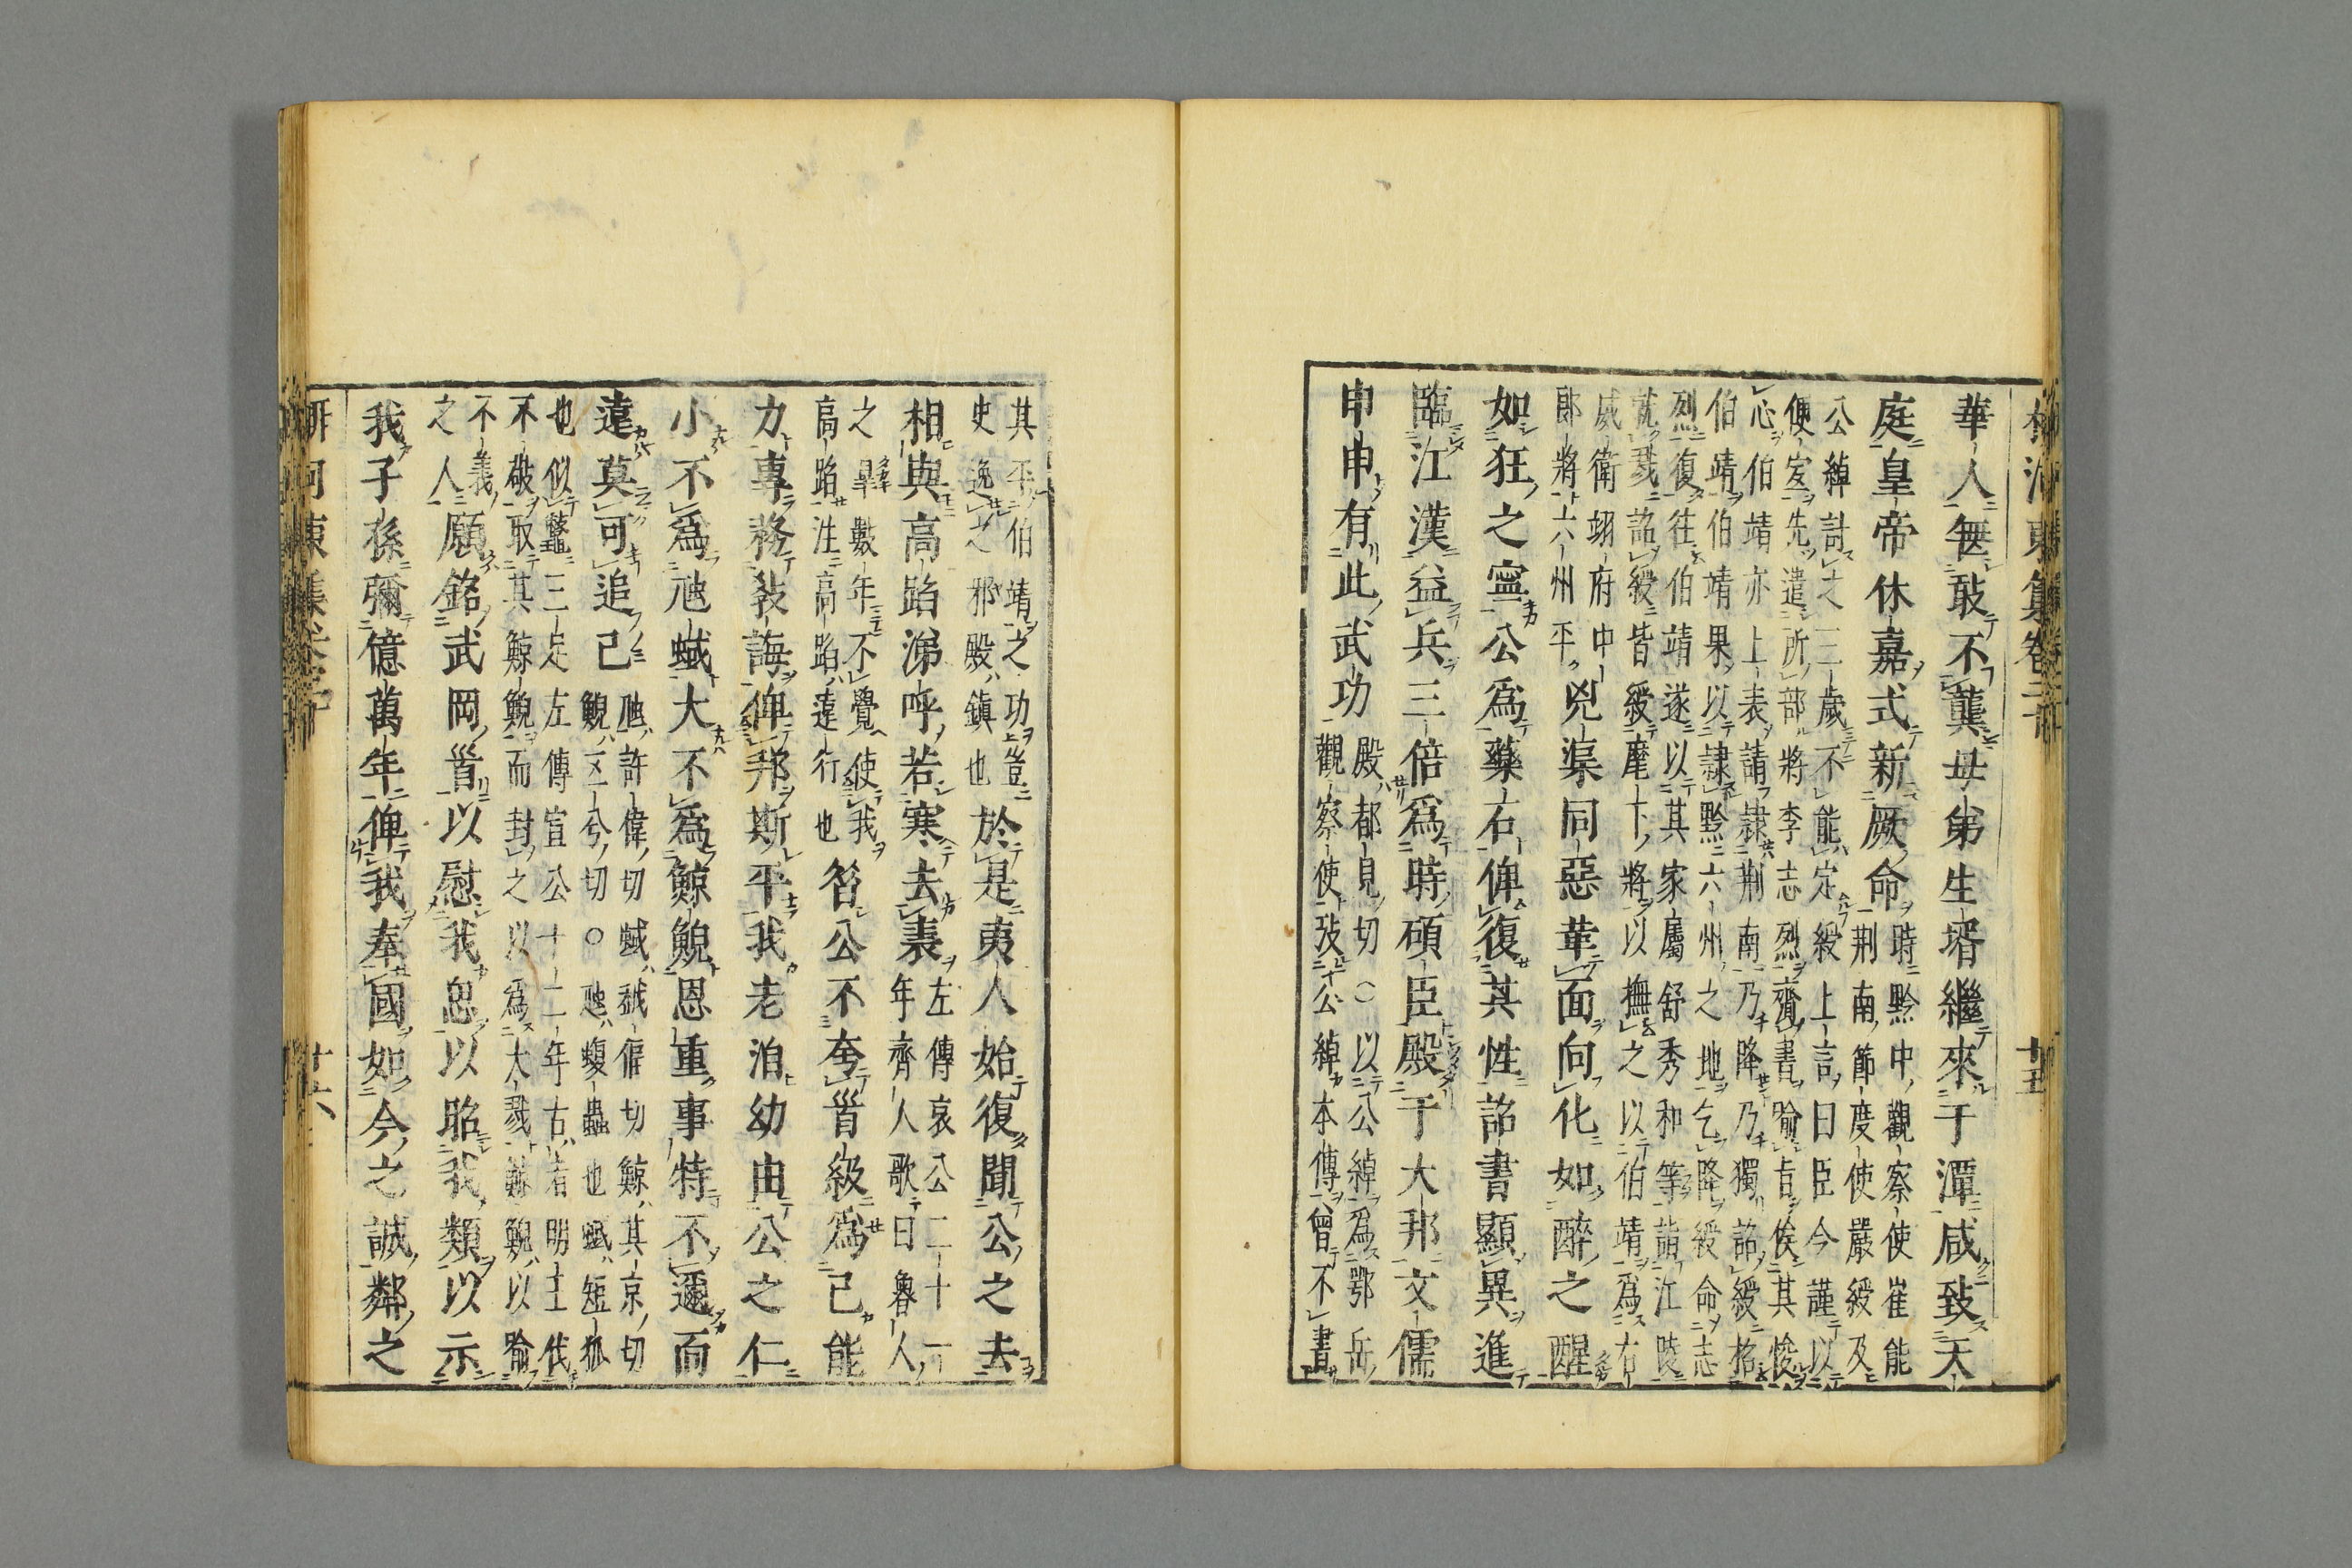 柳河東集卷二十
十五
華人無敢不龔母弟生壻繼來于潭咸致天
庭皇帝休嘉式新厥命時黔中觀察使崔能
荆南節度使嚴綬及
公綽討之三歲不能定綬上言曰臣今謹以
便宜先遣所部將李志烈齎書喻旨俟其悛
心伯靖亦上表請隷荆南乃降乃獨詔綬招
伯靖伯靖果以隷黔六州之地乞降綬命志
烈復往伯靖遂以其家屬舒秀和等詣江陵
就戮詔綬皆綬麾下將以撫之以伯靖爲右
威衛翊府中
郎將六州平兇渠同惡革面向化如醉之醒
如狂之寧公爲藥石俾復其性詔書顯異進
臨江漢益兵三倍爲時碩臣殿于大邦文儒
申申有此武功殿都見切○以公綽爲鄂岳
觀察使攷公綽本傳曾不書
其平伯靖之功豈
史逸之邪殿鎮也於是夷人始復聞公之去
相與高蹈涕呼若寒去裘左傳哀公二十一
年齊人歌曰魯人
之皋數年不覺使我
高蹈注高蹈遠行也昝公不夸首級爲己能
力專務敎誨俾邦斯平我老洎幼由公之仁
小不爲虺蜮大不爲鯨鯢恩重事特不邇而
遠莫可追已虺許偉切蜮越偪切鯨其京切
鯢五兮切○虺蝮蟲也蜮短狐
也似鼈三足左傳宣公十二年古者明王伐
不敬取其鯨鯢而封之以爲大戮鯨鯢以喻
不義
之人願銘武岡首以慰我思以昭我類以示
我子孫彌億萬年俾我奉國如今之誠鄰之
河東集卷
十六